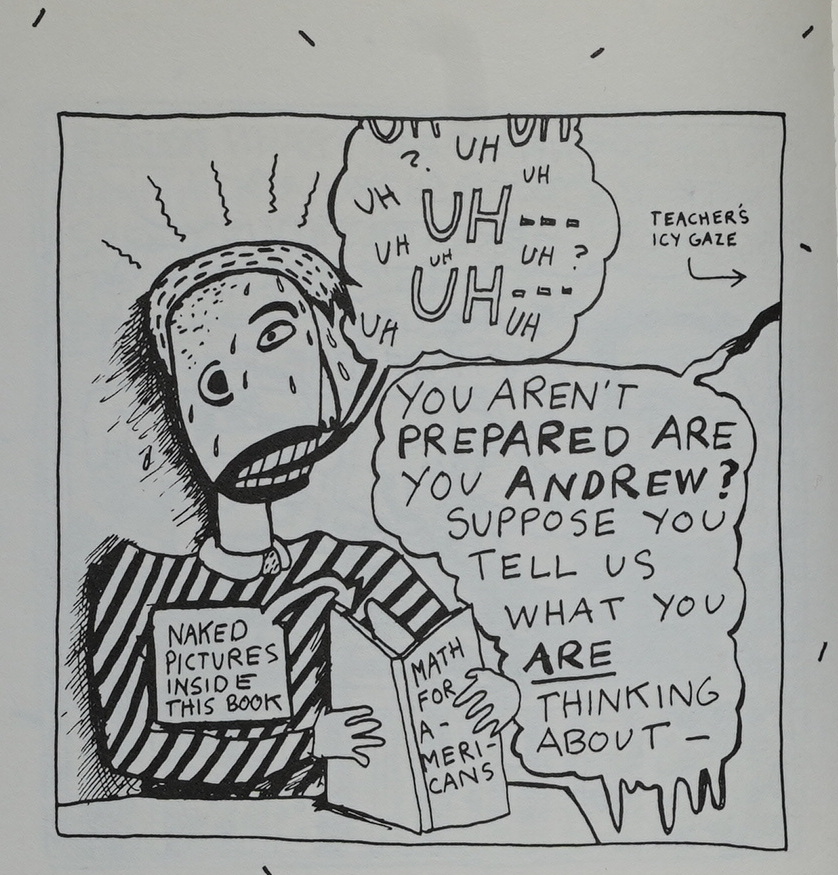 UH UH
? UH
UH
UH UH---
UH UH UH ?
UH---
UH UH
TEACHER'S
ICY GAZE
YOU AREN'T
PREPARED ARE
YOU ANDREW?
SUPPOSE YOU
TELL US
WHAT YOU
ARE
THINKING
ABOUT —
NAKED
PICTURES
INSIDE
THIS BOOK
MATH
FOR
A-
MERI-
CANS